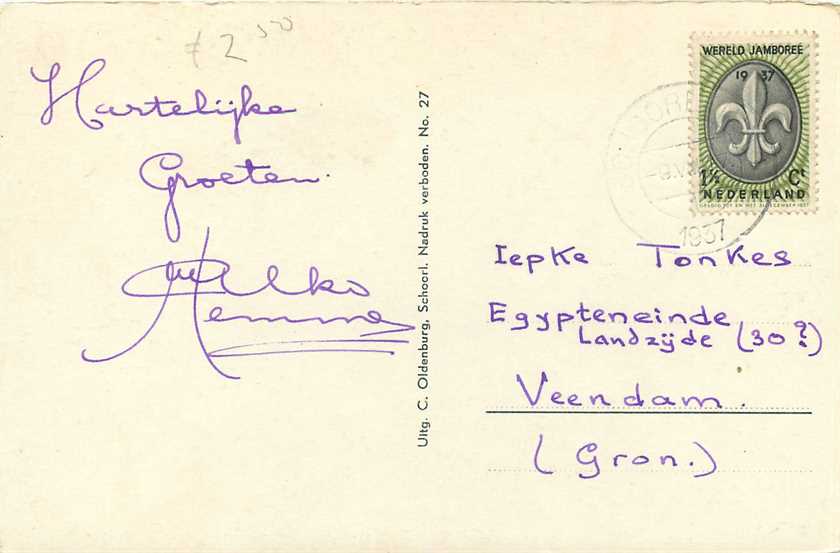 £ 2 50
Hartelijke
Groeten.
Alko
Hemmes
Uitg. C. Oldenburg, Schoorl. Nadruk verboden. No. 27
WERELD JAMBOREE
1937
1½ Ct
NEDERLAND
GELDIG TOT EN MET 31 DECEMBER 1937
1937
Iepke Tonkes
Egypteneinde
Landzijde (30?)
Veendam.
(Gron.)